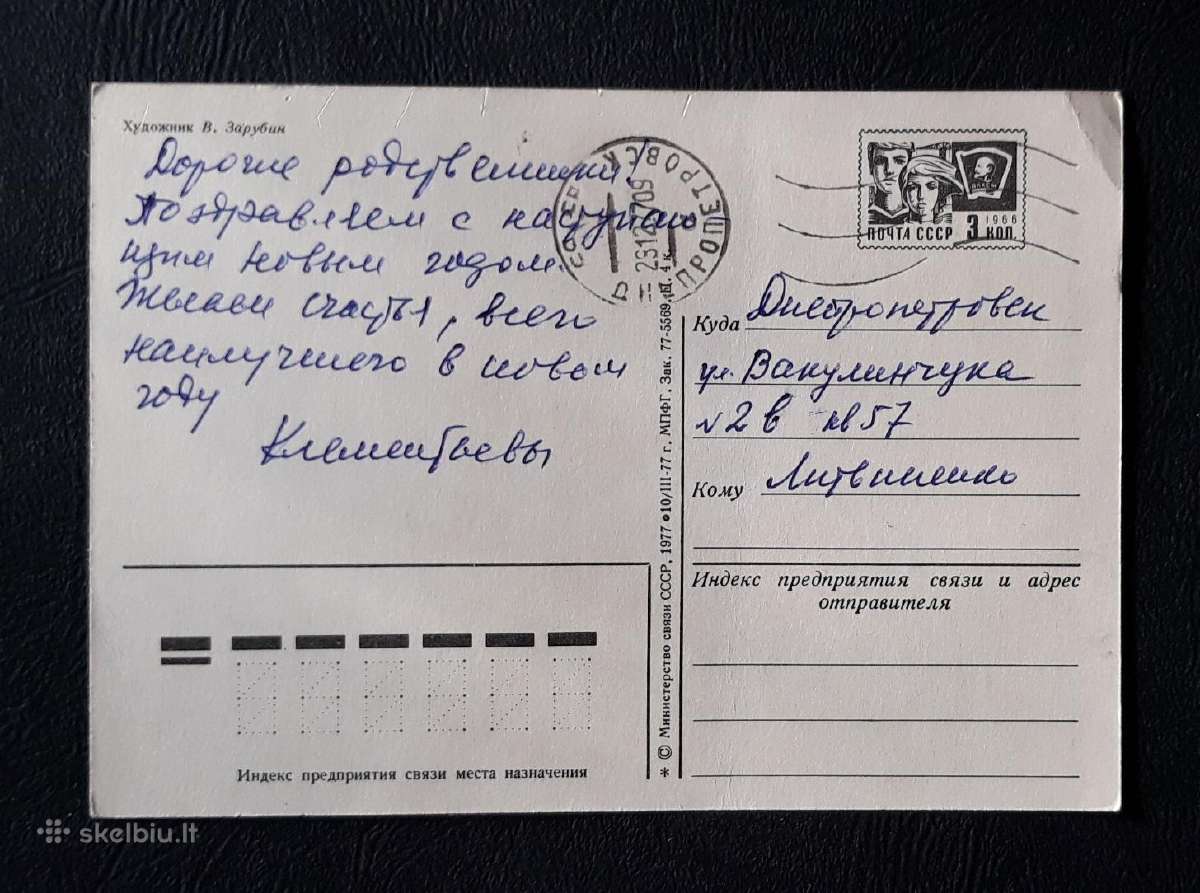 Художник В. Зарубин
Дорогие родственники!
Поздравляем с наступаю
щим новым годом.
Желаем счастья, всего
наилучшего в новом
году
Клементьевы
ПОЧТА СССР
1966
3 КОП.
Куда Днепропетровск
ул. Вакулинчука
№ 2 в кв 57
Кому Литвиненко
Индекс предприятия связи и адрес
отправителя
Индекс предприятия связи места назначения
* © Министерство связи СССР, 1977 • 10/III-77 г., МПФГ, Зак. 77-5569, Ц. 4 к.
skelbiu.lt